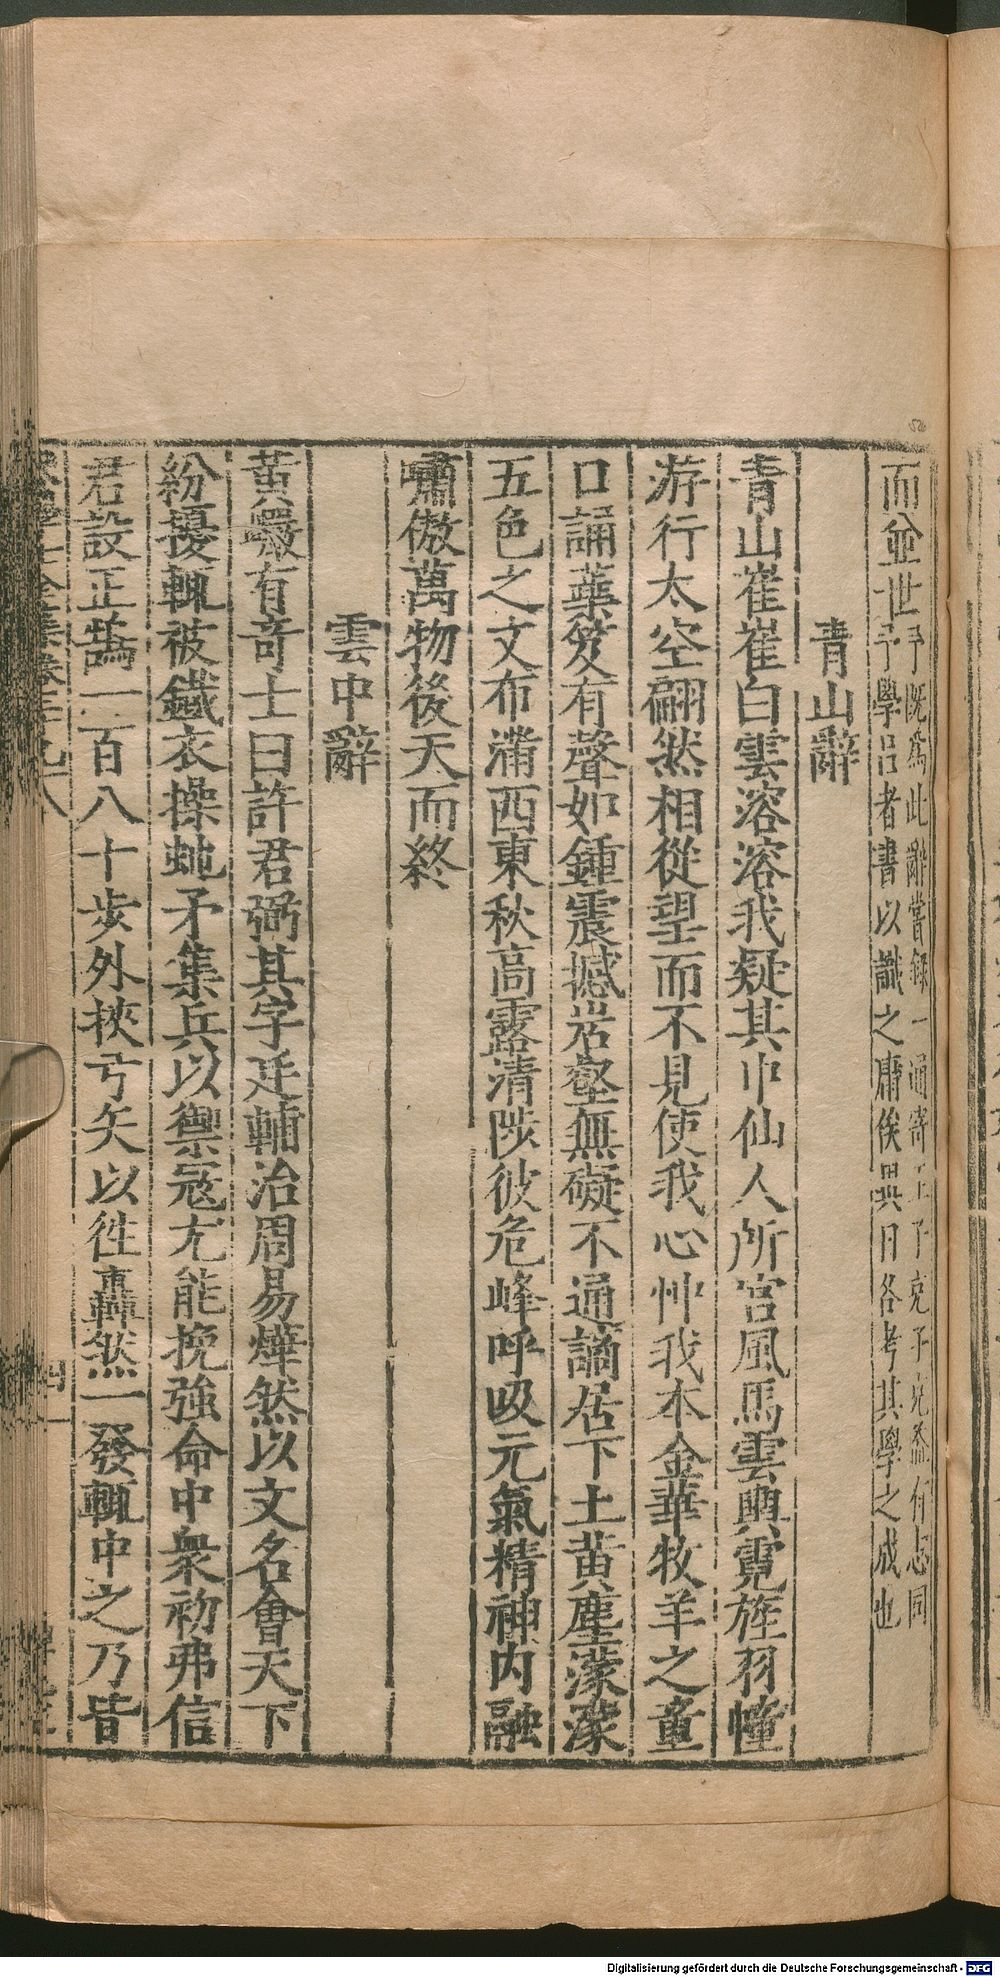 而並世予既爲此辭嘗録一通寄王子充子充蓋有志同
予學呂者書以識之庸俟異日各考其學之成也
青山辭
青山崔崔白雲溶溶我疑其中仙人所宮風馬雲輿霓旌羽幢
游行太空翩然相從望而不見使我心忡我本金華牧羊之童
口誦蘂笈有聲如鍾震撼岩壑無礙不通謫居下土黃塵濛濛
五色之文布滿西東秋高露清陟彼危峰呼吸元氣精神內融
嘯傲萬物後天而終
雲中辭
黃巖有奇士曰許君弼其字廷輔治周易燁然以文名會天下
紛擾輒被鐵衣操虵矛集兵以禦寇尤能挽強命中衆初弗信
君設正鵠一百八十步外挾弓矢以徃轟然一發輒中之乃皆
Digitalisierung gefördert durch die Deutsche Forschungsgemeinschaft - DFG